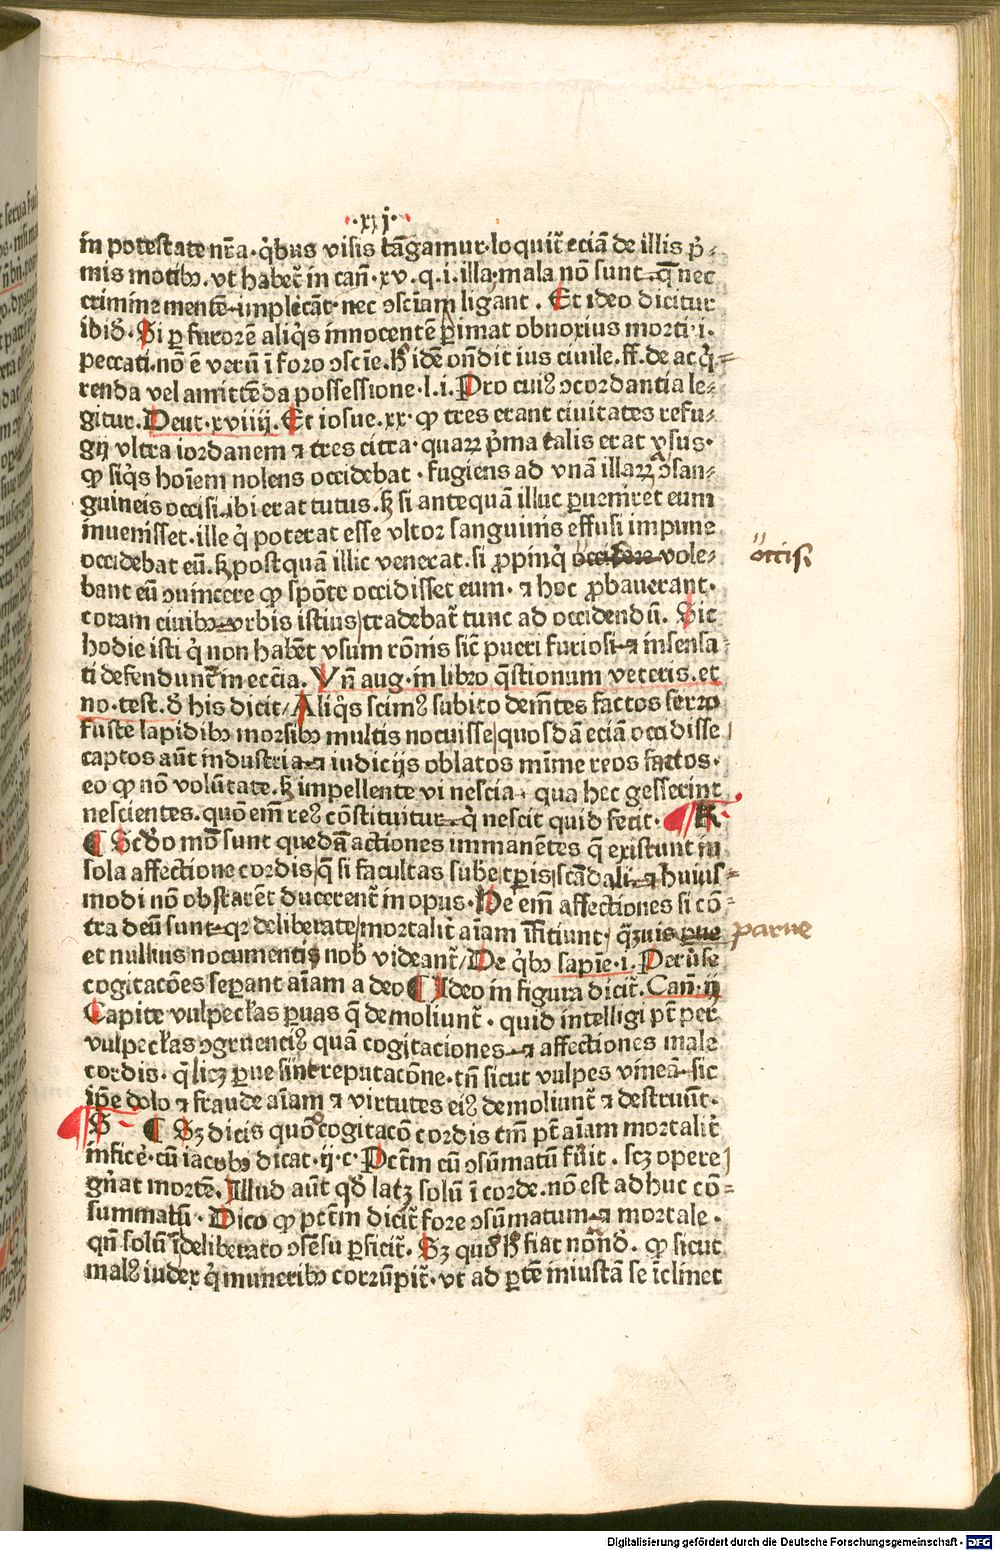 ·xxj·
in potestate nr̄a·q̄bus visis tāgamur·loquit̄ eciā de illis p̄⸗
mis motibꝰ. vt habet̄ in can̄·xv·q.i.illa·mala nō sunt q̄ nec
crimine mentē implēcāt·nec ↄsciam̄ ligant. Et ideo dicitur
ibid̄. Si ꝑ furorē aliq̄s innocentē ꝑimat obnoxius morti·i·
peccati·nō ē verū ī foro ↄsciē. h̄ idē on̄dit ius civile. ff. de acq̄⸗
renda vel amittēda possessione·l.i. Pro cuiꝰ ↄcordantia le⸗
gitur. Deut·xviiij. Et iosue.xx·ꝙ tres erant civitates refu⸗
gij vltra iordanem ⁊ tres citra·quaꝝ p̄ma talis erat vsus·
ꝙ siq̄s hoīem nolens occidebat·fugiens ad vnā illaꝝ ↄsan⸗
guineis occisi ibi erat tutus. sꝫ si antequā illuc ꝑveniret eum
invenisset·ille q̄ poterat esse vltor sanguinis effusi impune
occidebat eū. sꝫ postquā illic venerat.si ꝓpinq̄ occisore vole⸗
occis.
bant eū ↄvincere ꝙ spōte occidisset eum·⁊ hoc ꝓbaverant·
coram civibꝰ vrbis istius/tradebat̄ tunc ad occidendū. Sic
hodie isti q̄ non habēt vsum rōnis sic̄ pueri furiosi ⁊ insensa⸗
ti defendunt̄ in ecc̄ia. Vn̄ aug·in libro q̄stionum veteris.et
no·test.d̄ his dicit/Aliq̄s scimꝰ subito demētes factos ferro
fuste lapidibꝰ morsibꝰ multis nocuisse/quosdā eciā occidisse/
captos aūt industria ⁊ iudicijs oblatos mīme reos factos·
eo ꝙ nō volūtate.sꝫ impellente vi nescia·qua hec gesserint
nescientes.quō em̄ reꝰ cōstituitur q̄ nescit quid fecit· R
¶ Scd̄o mō sunt quedā actiones immanētes q̄ existunt in
sola affectione cordis/q̄ si facultas subēt tꝑis/scādali ⁊ huius⸗
modi nō obstarēt ducerent̄ in opus·He em̄ affectiones si cō⸗
tra deū sunt qꝛ deliberate/mortalit̄ aīam īficiunt/q̄ꝫvis ꝑve
parve
et nullius nocumentis nob̄ videant̄/De q̄bꝰ sapīe·i. Perv̄se
cogitacōes seꝑant aīam a deo ¶ Ideo in figura dicit̄. Can·ij
Capite vulpecl̄as ꝑvas q̄ demoliunt̄·quid intelligi pt̄ per
vulpecl̄as ↄgruenciꝰ quā cogitaciones ⁊ affectiones male
cordis·q̄ licꝫ ꝑve sint reputacōne·tn̄ sicut vulpes vineā·sic
ip̄e dolo ⁊ fraude aīam ⁊ virtutes eiꝰ demoliunt̄ ⁊ destruūt·
S ¶ Sꝫ dicis quō cogitacō cordis tm̄ pt̄ aīam mortalit̄
inficē·cū iacobꝰ dicat·ij·c·Pctm̄ cū ↄsūmatū fu̇it.scꝫ opere/
gn̄at mortē. Illud aūt qd̄ latꝫ solū ī corde.nō est adhuc cō⸗
summatū·Dico ꝙ pctm̄ dicit̄ fore ↄsūmatum ⁊ mortale·
qn̄ solū ī deliberato ↄsēsu ꝑficit̄. Sꝫ quō h̄ fiat nōnd̄. ꝙ sicut
malꝰ iudex q̄ muneribꝰ corrūpit̄·vt ad ꝑtē iniustā se īclinet
Digitalisierung gefördert durch die Deutsche Forschungsgemeinschaft - DFG